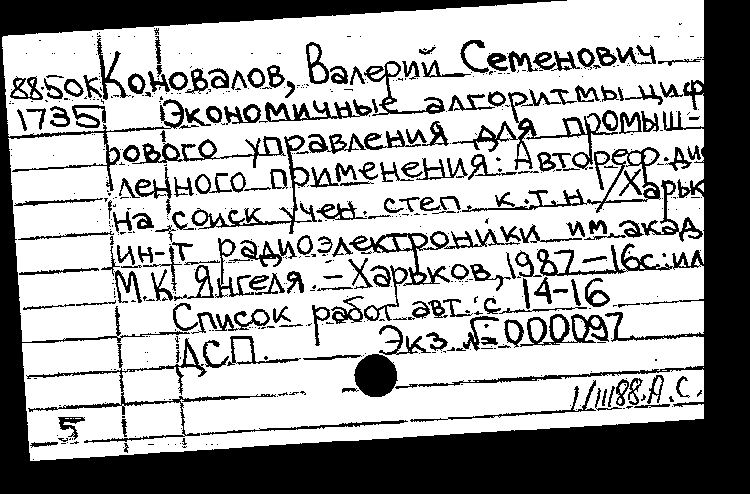 88-50К Коновалов, Валерий Семенович
1735 Экономичные алгоритмы циф
рового управления для промыш-
ленного применения: Автореф. ди
на соиск учен. степ. к.т.н. / Харьк
ин-т радиоэлектроники им. акад.
М.К. Янгеля. – Харьков, 1987 – 16с.: ил
Список работ авт.: с. 14-16
ДСП. Экз. № 000097
1/III88. А.С.
5